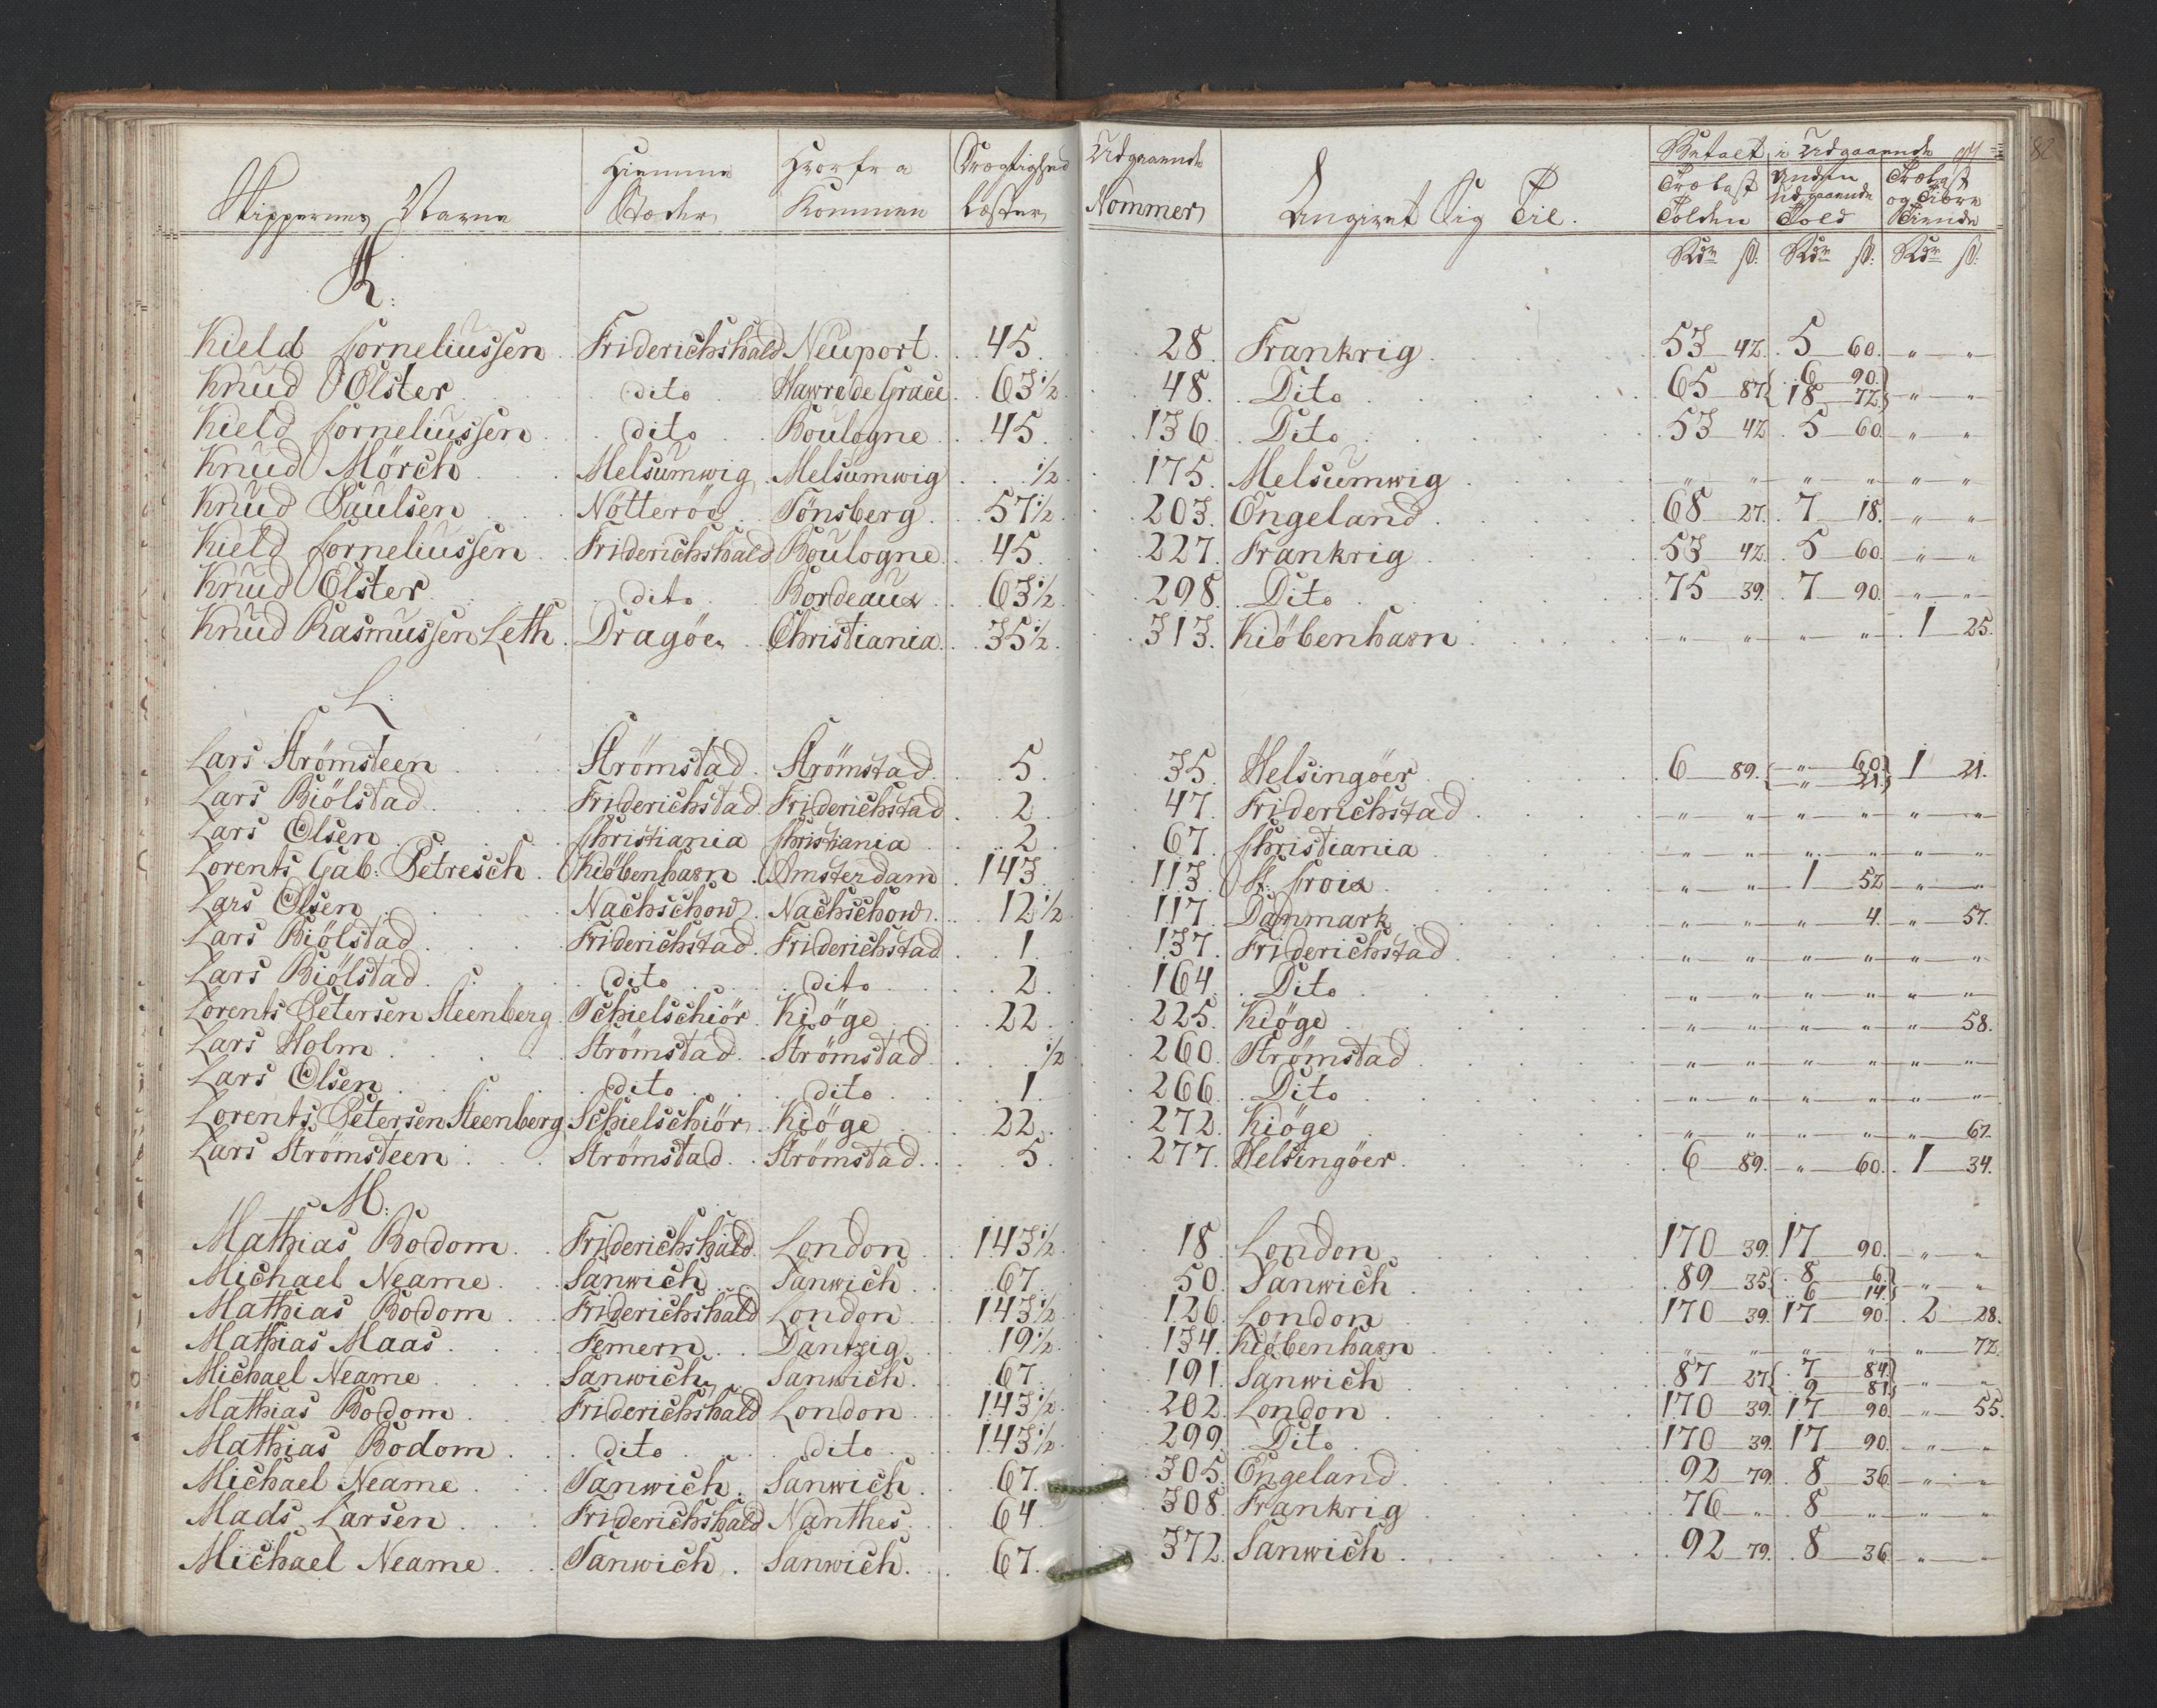 Skippernes Navne | Hiemme Stæder | Hvorfra Kommen | Drægtighed Læster | Udgaaende Nommer | Angivet Sig Til. | Betalt i Udgaaende
Trælast Tolden | Anden Udgaaende Told | Trælast og Tiende
Rdr ß: | Rdr ß: | Rdr ß:
K:
Kield Corneliussen | Friderichshald | Neuport | 45 | 28. | Frankrig | 53 42. | 5 60. | " "
Knud Olster | dito | Hawre de Grace | 63 1/2 | 48. | Dito | 65 87. | { 6 90. 18 72. } | " "
Kield Corneliussen | dito | Boulogne | 45. | 136. | Dito | 53 42 | 5 60. | " "
Knud Mörch | Melsumwig | Melsumwig | 1/2 | 175. | Melsumwig | " " | " " | " "
Knud Paulsen | Nötteröe | Tönsberg | 57 1/2 | 203. | Engeland | 68 27. | 7 18. | " "
Kield Corneliussen | Friderichshald | Boulogne | 45 | 227. | Frankrig | 53 42. | 5 60. | " "
Knud Elster | dito | Bordeaux | 63 1/2 | 298. | Dito | 75 39. | 7 90. | " "
Knud Rasmussen Leth | Dragöe | Christiania | 35 1/2 | 313. | Kiöbenhavn | " " | " " | 1 25.
L:
Lars Strömsteen | Strömstad | Strömstad | 5 | 35. | Helsingöer | 6 89. | { " 60. " 21. } | 1 21.
Lars Biölstad | Friderichstad | Friderichstad | 2 | 47. | Friderichstad | " " | " " | " "
Lars Olsen | Christiania | Christiania | 2 | 67. | Christiania | " " | " " | " "
Lorents Gab: Petresch | Kiöbenhavn | Amsterdam | 143 | 113. | St: Croix | " " | 1 52 | " "
Lars Olsen | Nachschow | Nachschow | 12 1/2 | 117. | Danmark | " " | " 4. | " 57.
Lars Biölstad | Friderichstad | Friderichstad | 1 | 137. | Friderichstad | " " | " " | " "
Lars Biölstad | dito | dito | 2 | 164. | Dito | " " | " " | " "
Lorents Petersen Steenberg | Schielschiör | Kiöge | 22 | 225. | Kiöge | " " | " " | " 58.
Lars Holm | Strömstad | Strömstad | 1/2 | 260. | Strömstad | " " | " " | " "
Lars Olsen | dito | dito | 1 | 266. | Dito | " " | " " | " "
Lorents Petersen Steenberg | Schielschiör | Kiöge | 22 | 272. | Kiöge | " " | " " | " 67.
Lars Strömsteen | Strömstad | Strömstad | 5 | 277. | Helsingöer | 6 89. | " 60. | 1 34.
M:
Mathias Bodom | Friderichshald | London | 143 1/2 | 18. | London | 170 39. | 17 90. | " "
Michael Neame | Sanwich | Sanwich | 67 | 50. | Sanwich | 89 35. | { 8 6. 6 14. } | " "
Mathias Bodom | Friderichshald | London | 143 1/2 | 126. | London | 170 39. | 17 90. | 2 28.
Mathias Maas | Femern | Dantzig | 19 1/2 | 134. | Kiöbenhavn | " " | " " | " 72.
Michael Neame | Sanwich | Sanwich | 67 | 191. | Sanwich | 87 27. | { 7 84. 9 81. } | " "
Mathias Bodom | Friderichshald | London | 143 1/2 | 202. | London | 170 39. | 17 90. | " 55.
Mathias Bodom | dito | dito | 143 1/2 | 299. | Dito | 170 39. | 17 90. | " "
Michael Neame | Sanwich | Sanwich | 67. | 305. | Engeland | 92 79. | 8 36 | " "
Mads Larsen | Friderichshald | Nanthes | 64 | 308. | Frankrig | 76 " | 8 " | " "
Michael Neame | Sanwich | Sanwich | 67. | 372. | Sanwich | 92 79. | 8 36 | " "